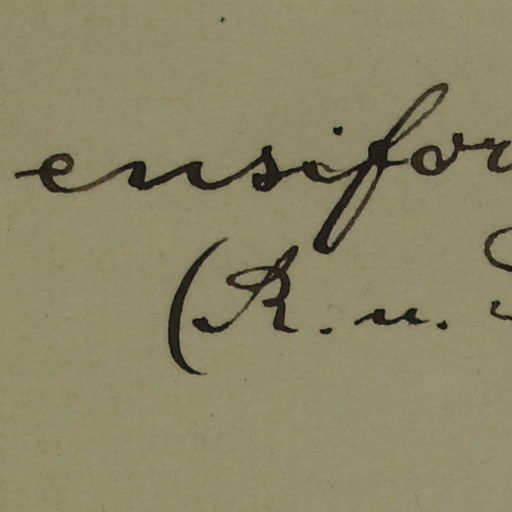 ensifor
(R. u.